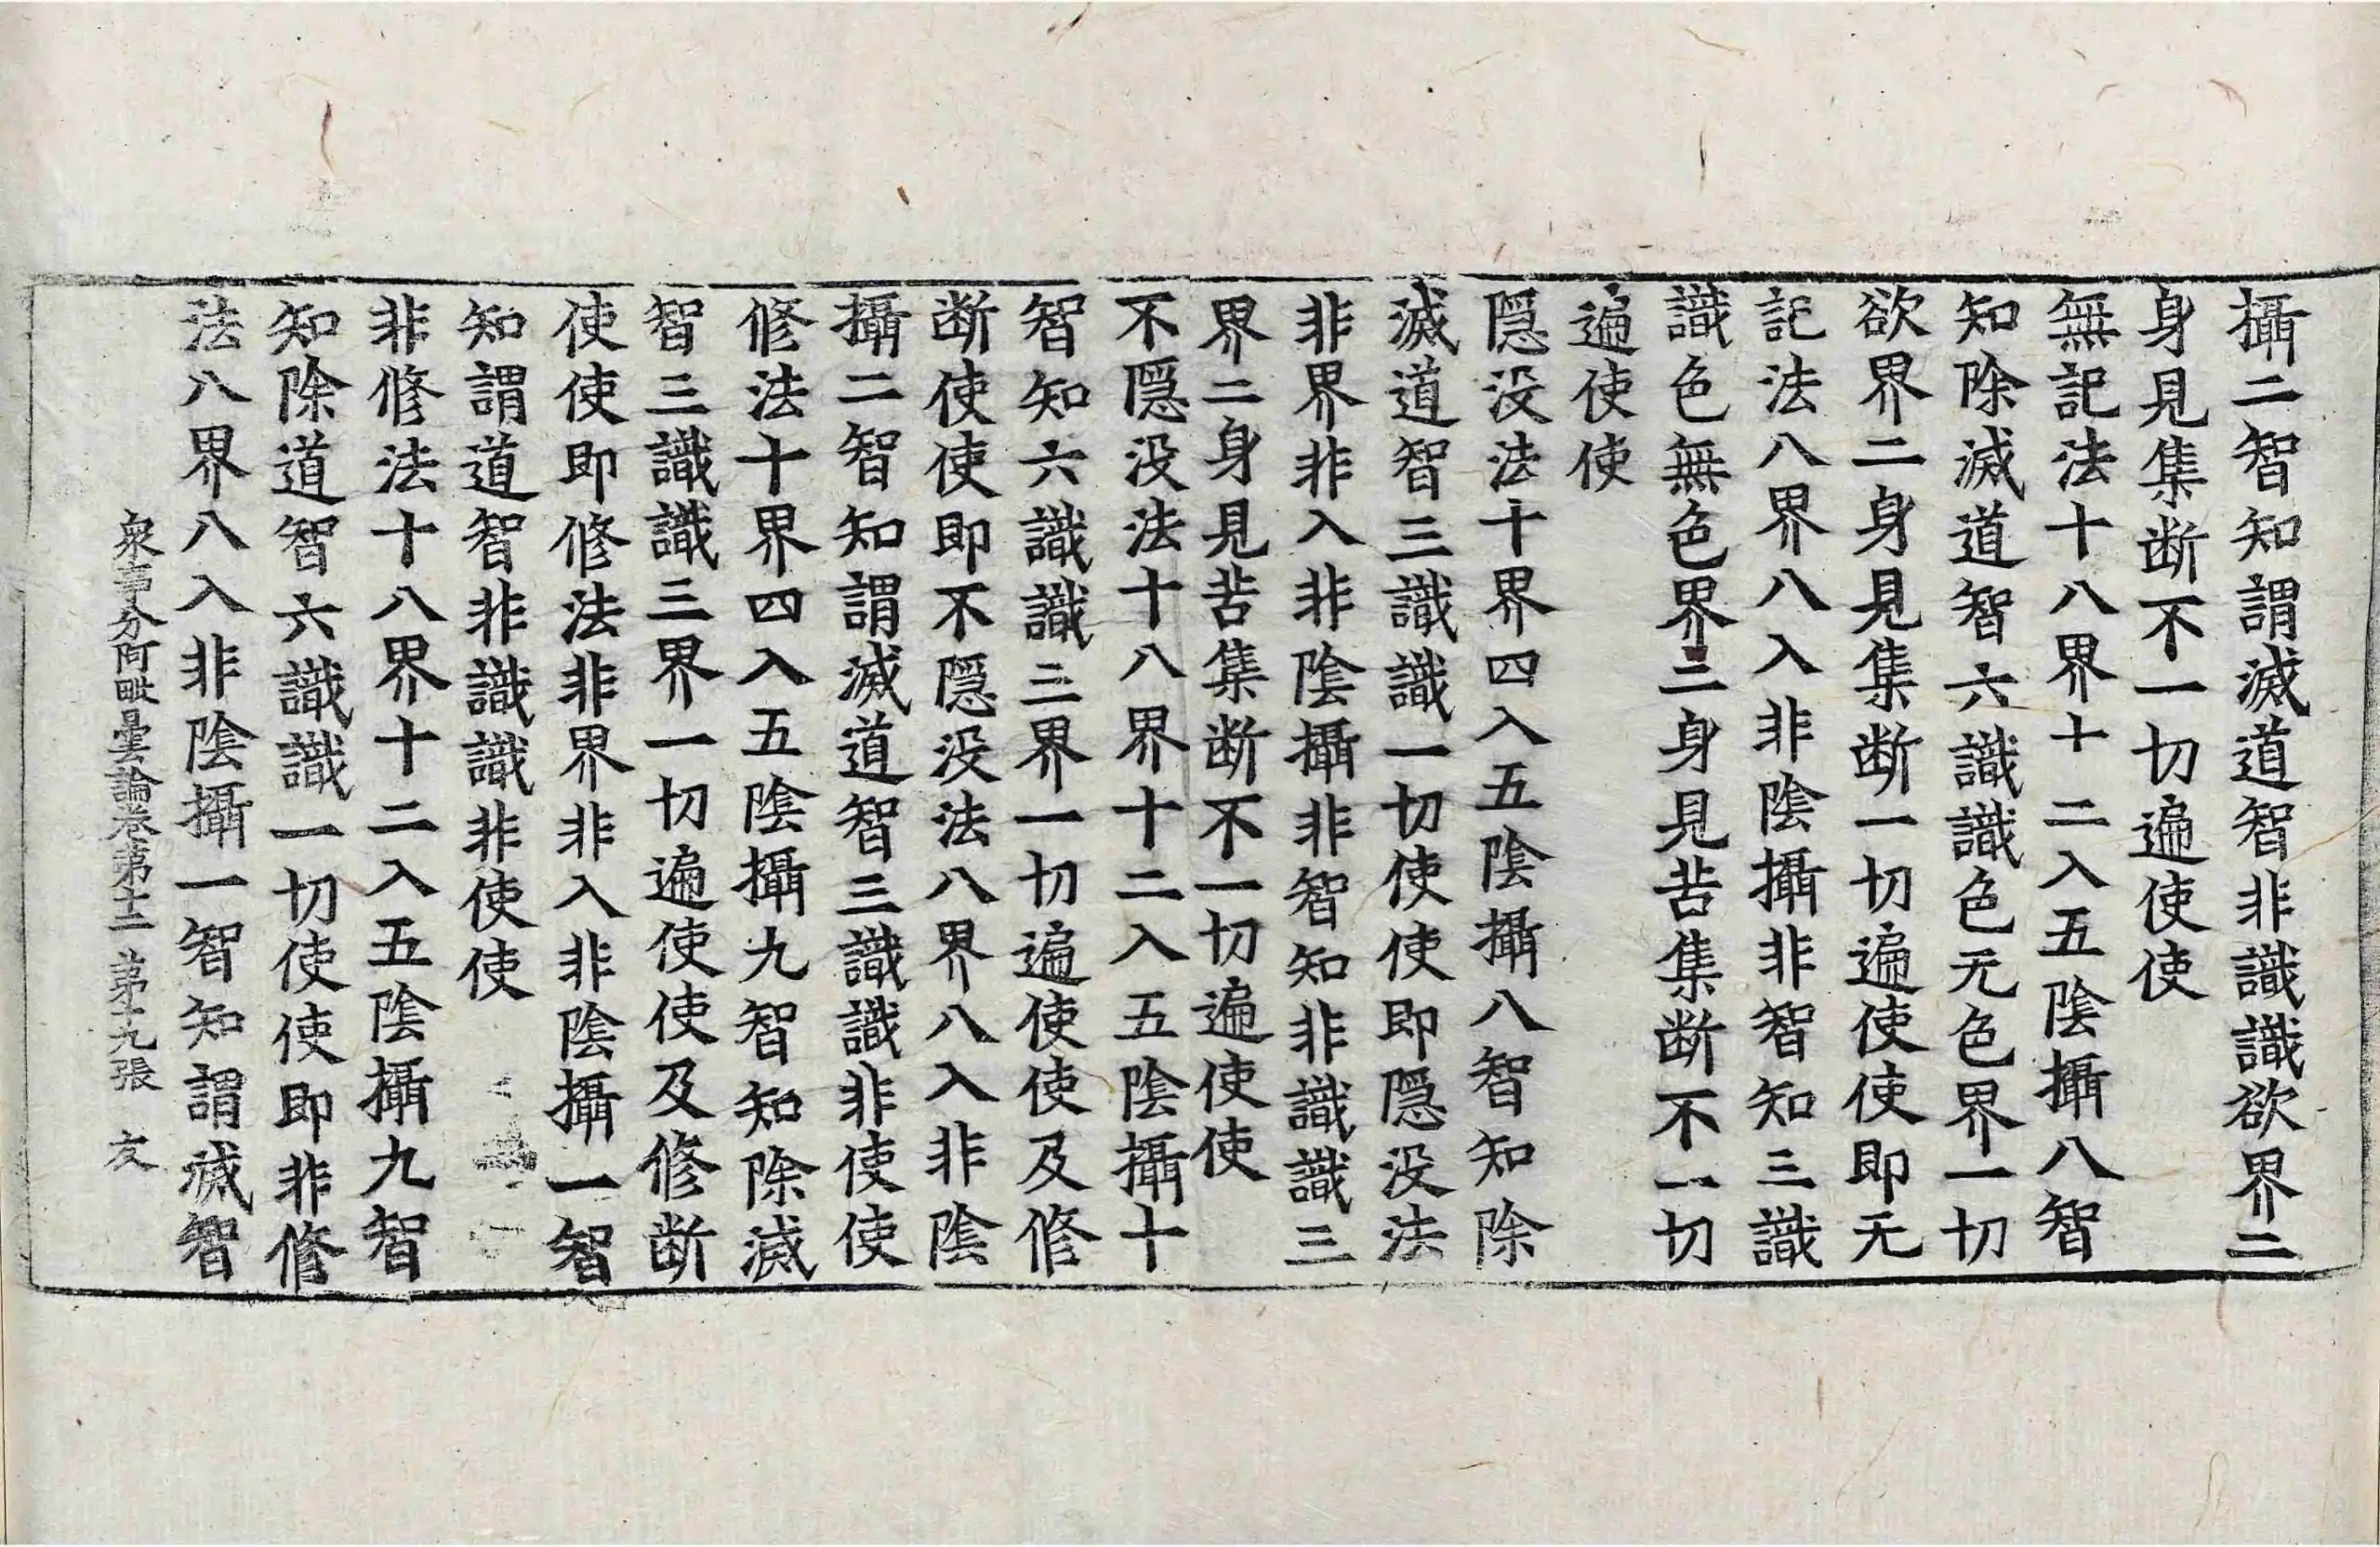 攝二智知謂滅道智非識識欲界二
身見集断不一切遍使使
無記法十八界十二入五陰攝八智
知除滅道智六識識色无色界一切
欲界二身見集断一切遍使使即无
記法八界八入非陰攝非智知三識
識色無色界二身見苦集断不一切
遍使使
隠没法十界四入五陰攝八智知除
滅道智三識識一切使使即隠没法
非界非入非陰攝非智知非識識三
界二身見苦集断不一切遍使使
不隠没法十八界十二入五陰攝十
智知六識識三界一切遍使使及修
断使使即不隠没法八界八入非陰
攝二智知謂滅道智三識識非使使
修法十界四入五陰攝九智知除滅
智三識識三界一切遍使使及修断
使使即修法非界非入非陰攝一智
知謂道智非識識非使使
非修法十八界十二入五陰攝九智
知除道智六識識一切使使即非修
法八界八入非陰攝一智知謂滅智
衆事分阿毗曇論卷第十二 第十九張 友